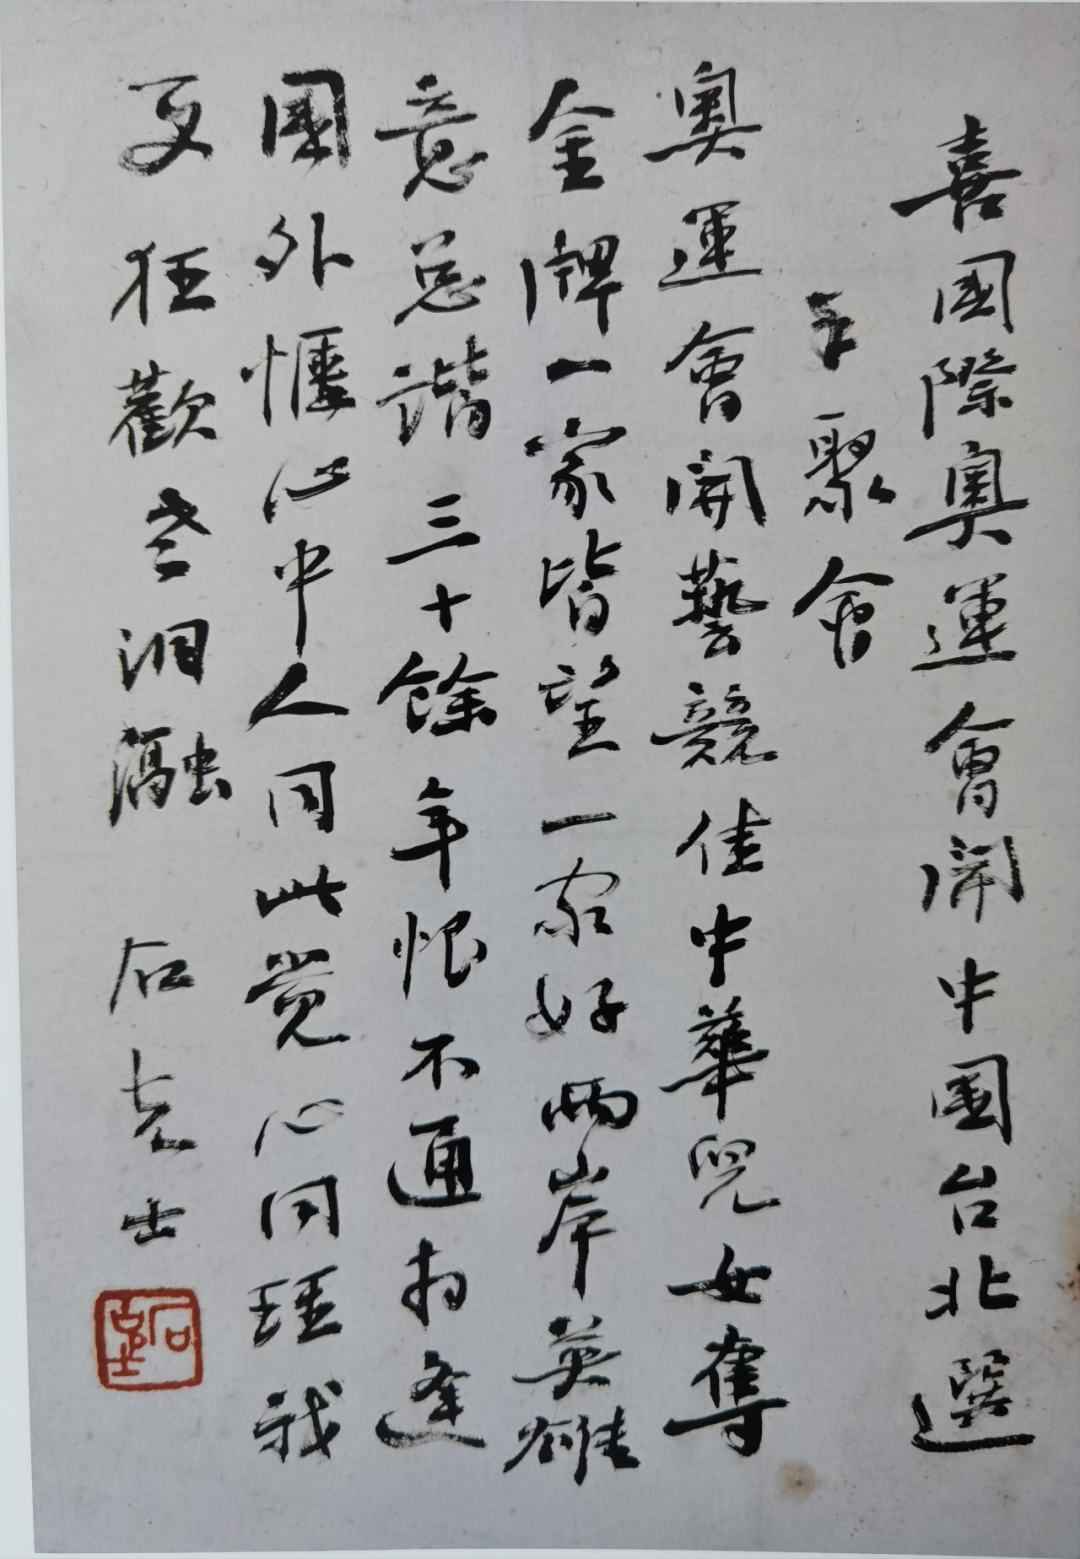 喜國際奧運會開中國台北選
手聚會
奧運會開藝競佳中華兒女奪
金牌一家皆望一家好兩岸英雄
意总谐三十餘年恨不通相逢
國外惬心中人同此觉心同理我
更狂歡老泪瀜
石克士